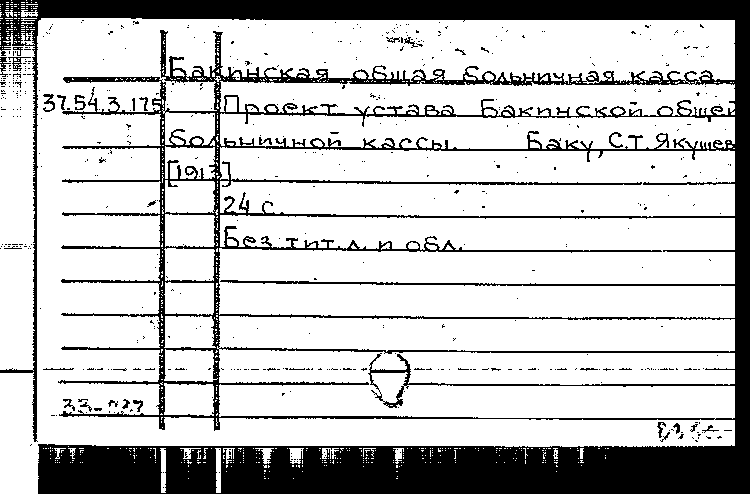 Бакинская общая больничная касса.
37.54.3.175 Проект устава Бакинской общей
больничной кассы. Баку, С.Т. Якушев
[1913].
24 с.
Без тит. л. и обл.